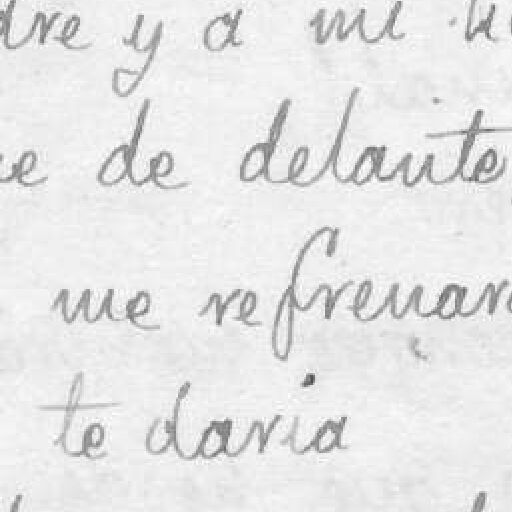 dre y a mi
de delante
me refrenar
te daria